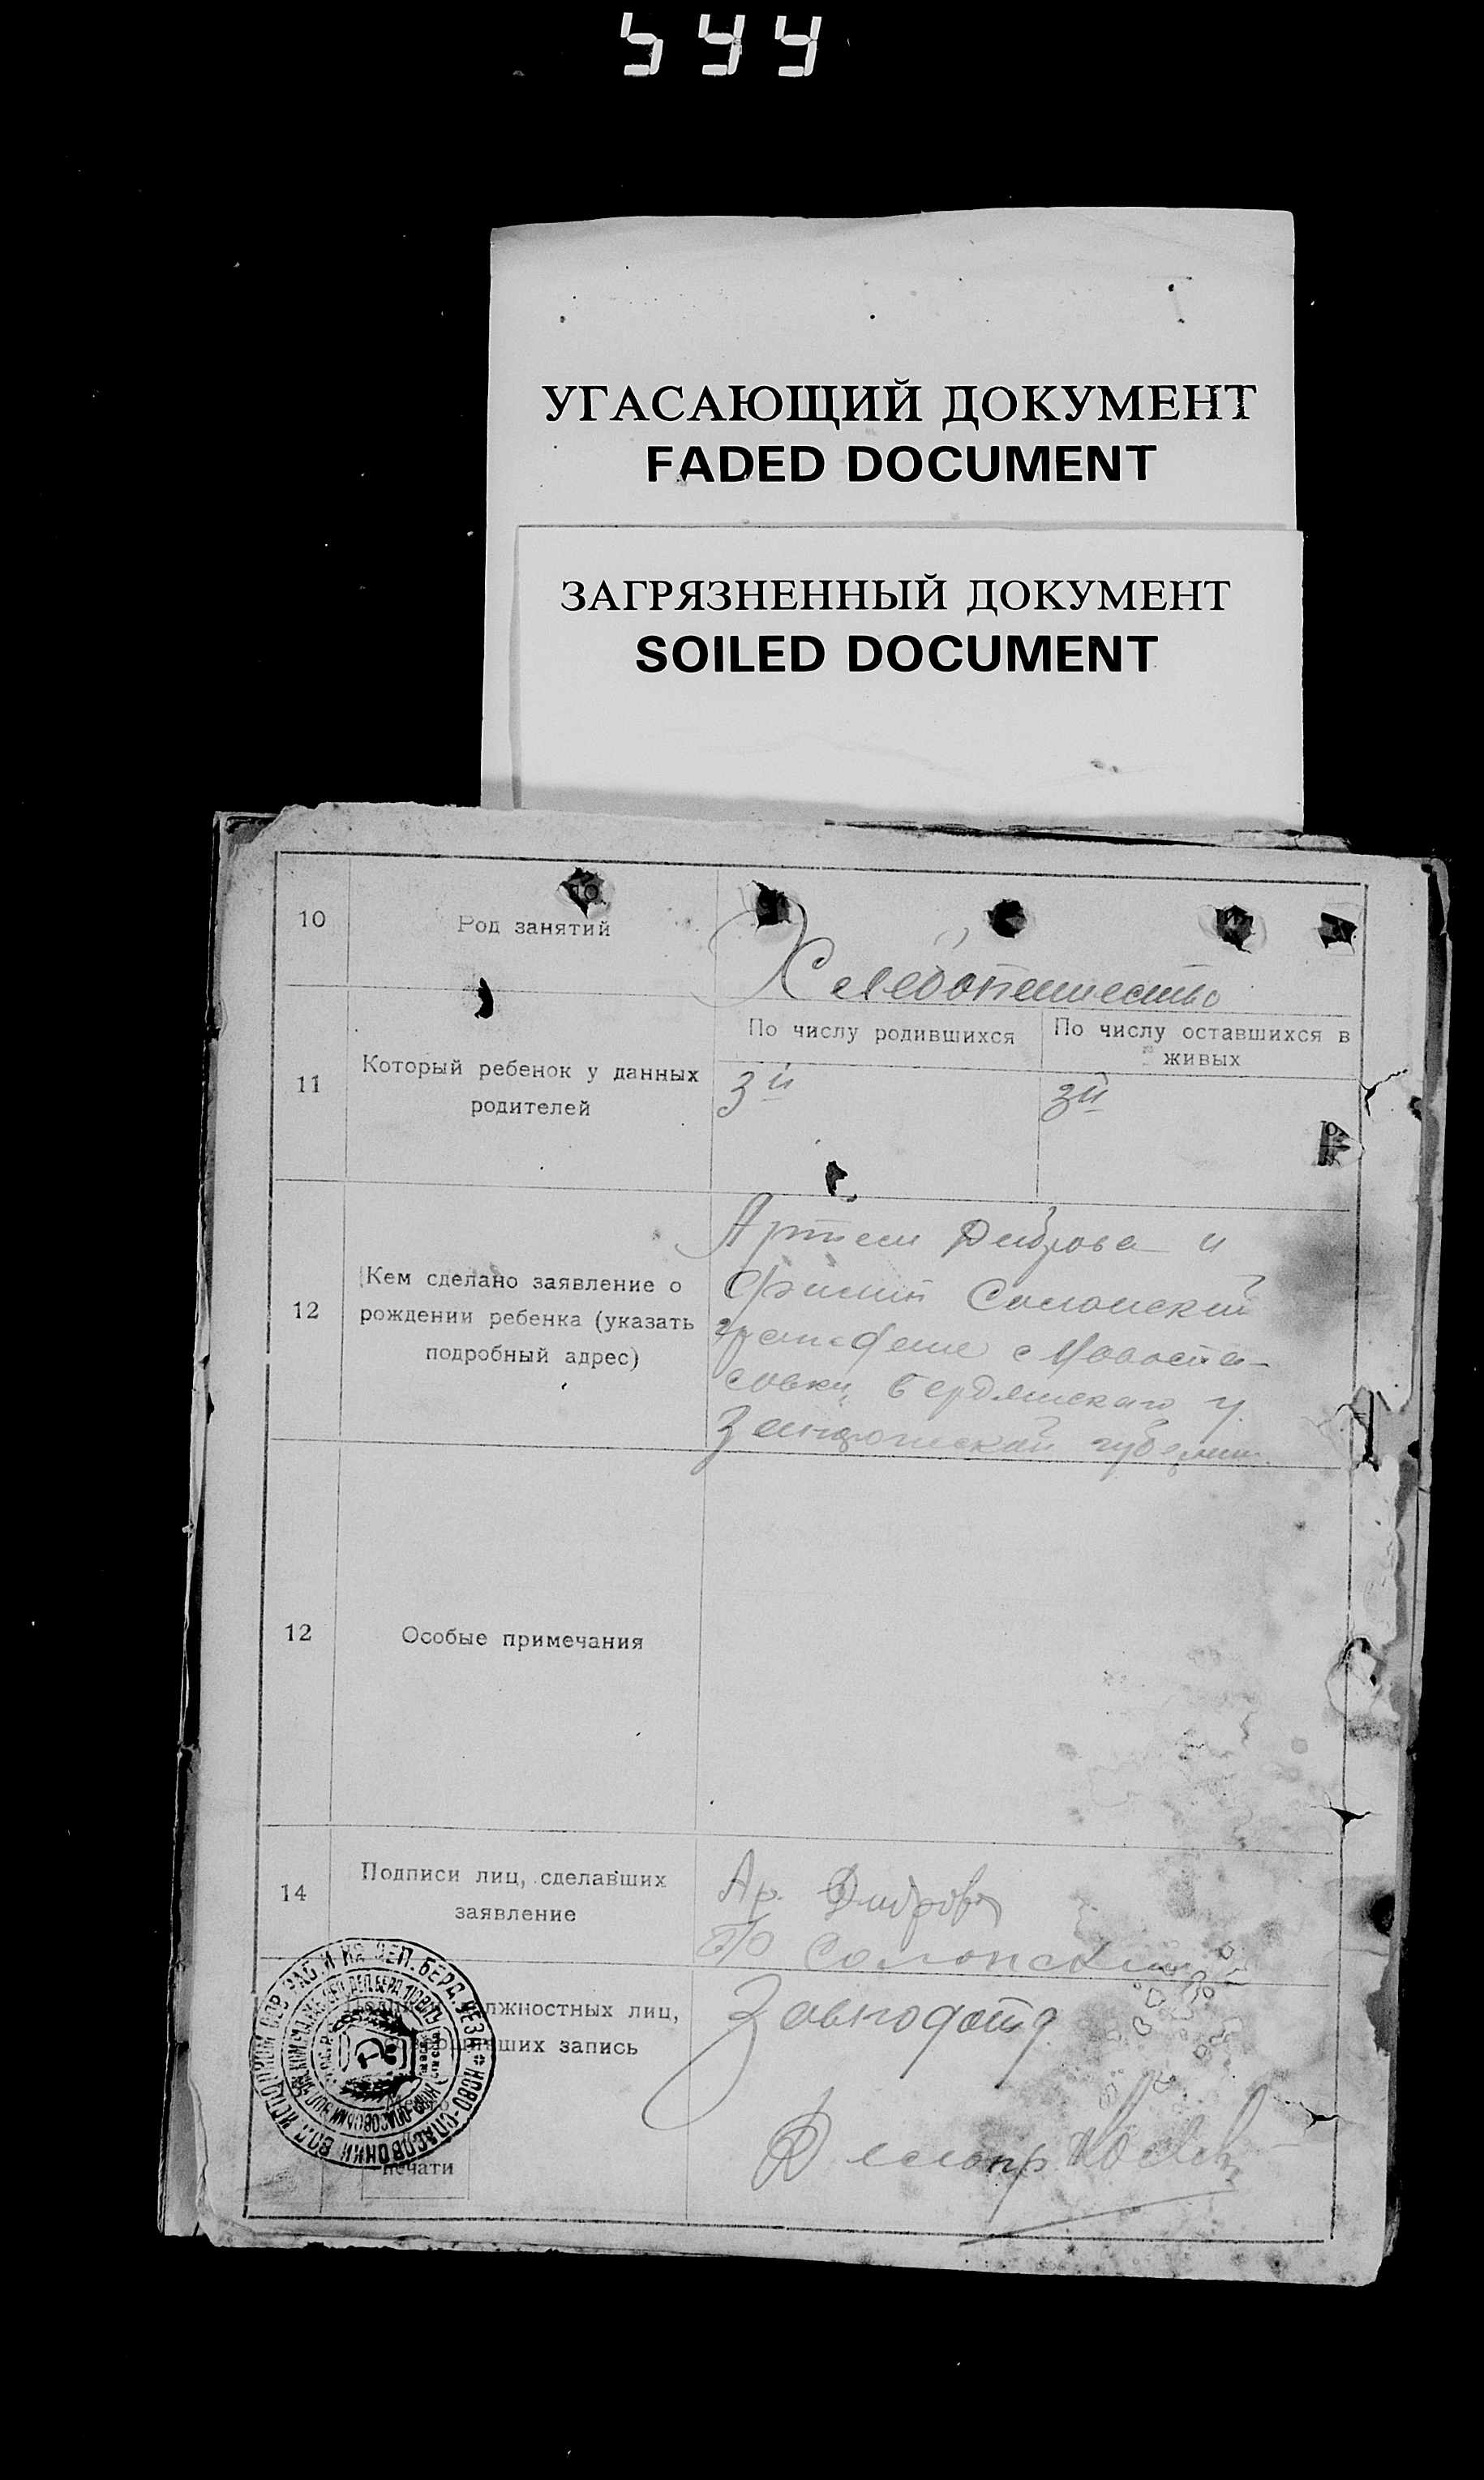 544
УГАСАЮЩИЙ ДОКУМЕНТ
FADED DOCUMENT
ЗАГРЯЗНЕННЫЙ ДОКУМЕНТ
SOILED DOCUMENT
10
Род занятий
Хлебопашество
11
Который ребенок у данных
родителей
По числу родившихся
По числу оставшихся в
живых
3й
3й
12
Кем сделано заявление о
рождении ребенка (указать
подробный адрес)
Артем Диброва и
Солонский
граждане с Новоспа-
совки Бердянскаго у.
Запорожской губернии
12
Особые примечания
14
Подписи лиц, сделавших
заявление
Ар. Диброва
Солонский
лжностных лиц,
вших запись
печати